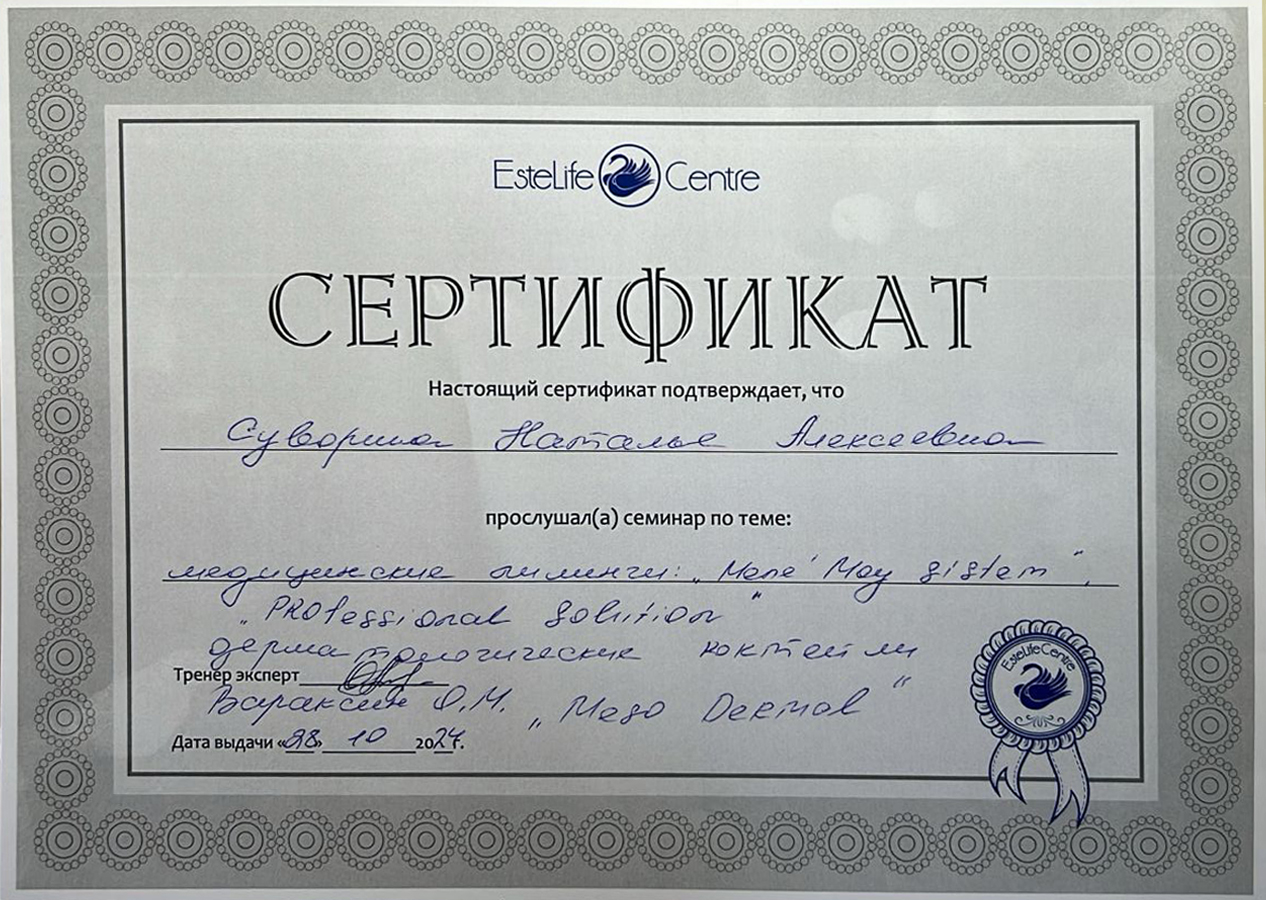 EsteLife Centre
СЕРТИФИКАТ
Настоящий сертификат подтверждает, что
Суворина Наталья Алексеевна
прослушал(а) семинар по теме:
медицинские пилинги: „Mene Moy sistem",
„PROfessional Solution"
дерматологические коктейли
Тренер эксперт
Вараксин О.М. „Meso Dermal"
Дата выдачи «28» 10 2024г.
EsteLifeCentre